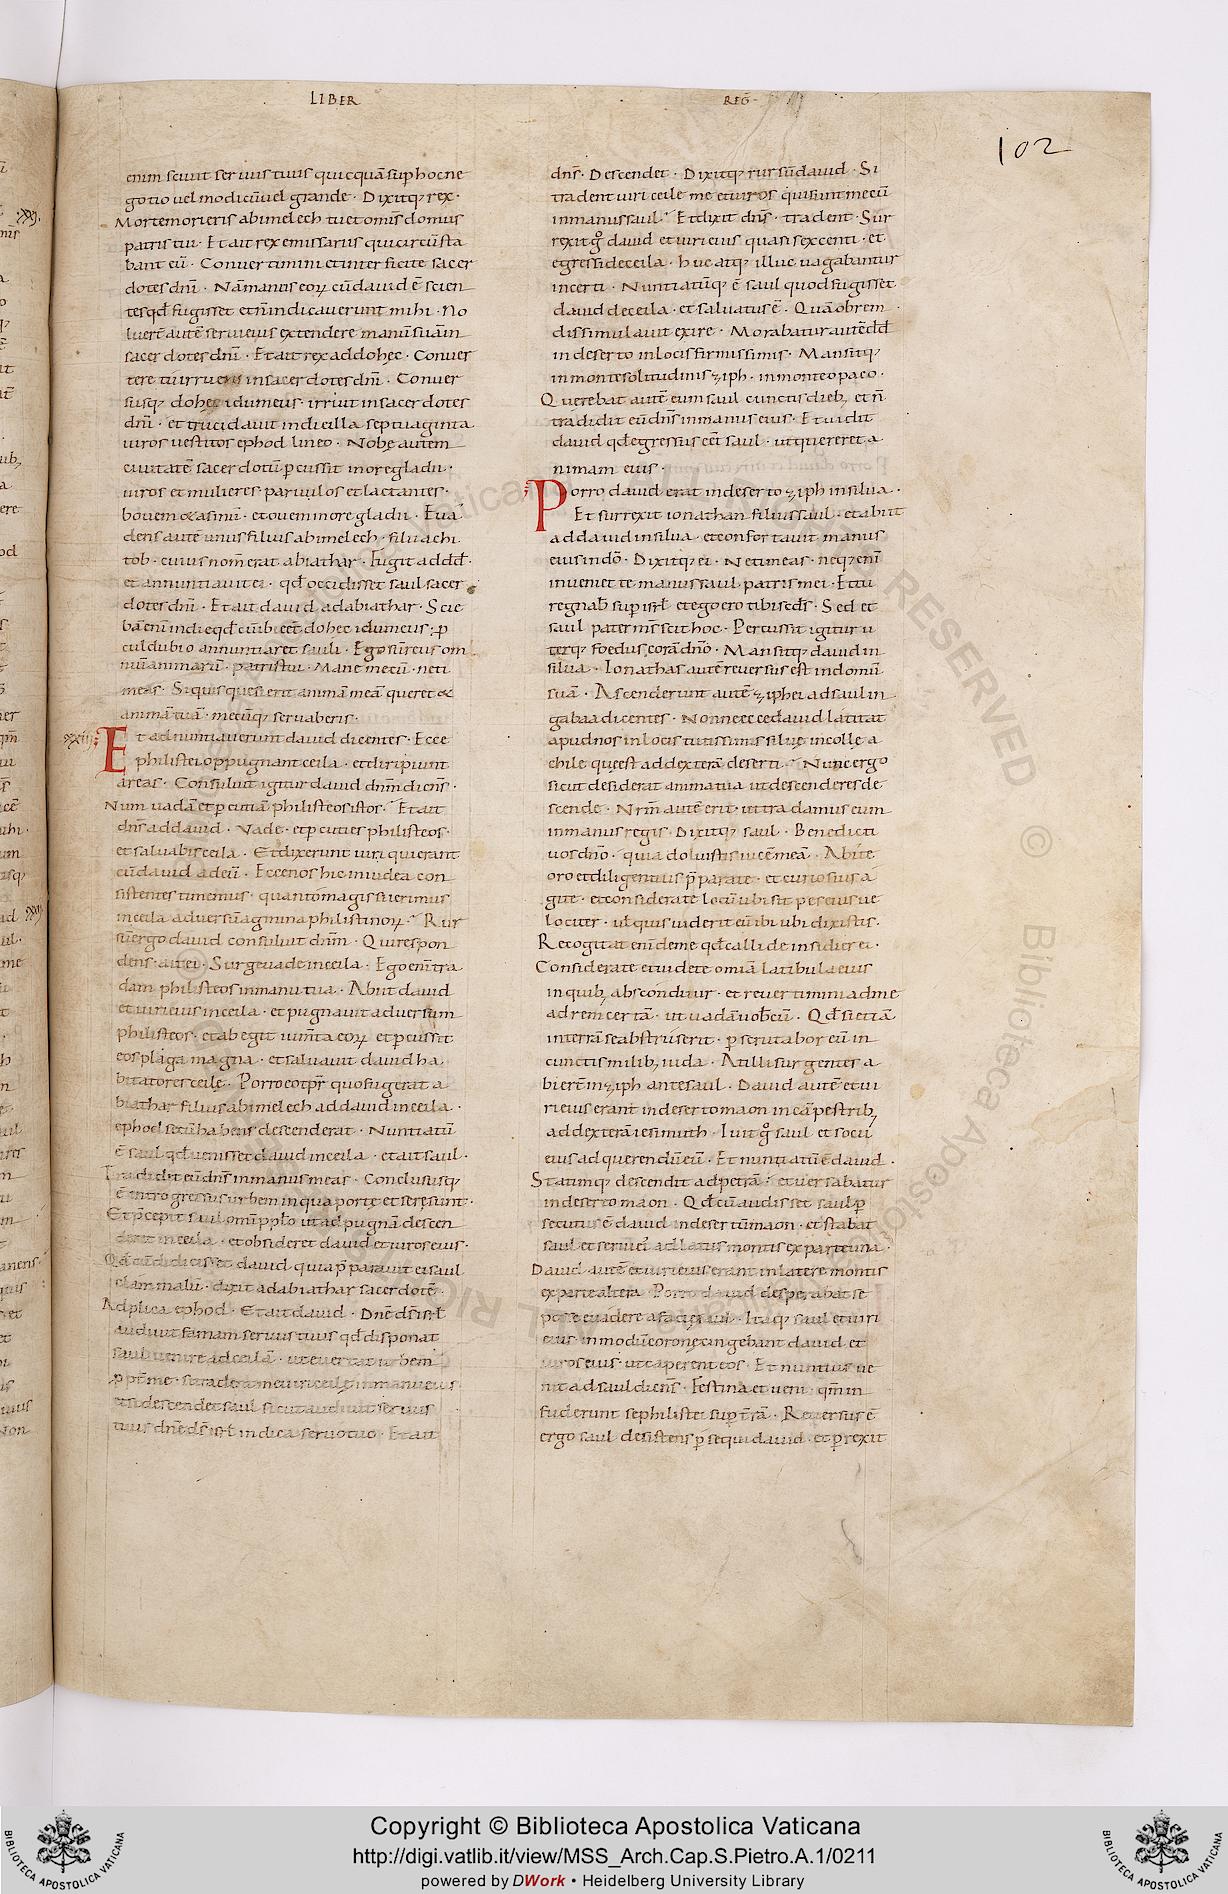 LIBER
REḠ
102
enim sciuit seruus tuus quicquā sup̄ hoc ne
gotio uel modicū uel grande · Dixitq; rex ·
Morte morieris abimelech tu et om̄s domus
patris tui · Et ait rex emissariis qui circūsta
bant eū · Conuertimini et interficite sacer
dotes dn̄i · Nā manus eoꝝ cū dauid ē scien
tes qđ fugisset et n̄ indicauerunt mihi · No
luer̄t autē serui eius extendere manū suā in
sacerdotes dn̄i · Et ait rex ad dohęc · Conuer
tere tu irrue in sacerdotes dn̄i · Conuer
susq; dohęc idumeus · irriuit in sacerdotes
dn̄i · et trucidauit in die illa septuaginta
uiros uestitos ephod lineo · Nobę autem
ciuitatē sacerdotū ꝑcussit in ore gladii ·
uiros et mulieres paruulos et lactantes ·
bouem & asinū · et ouem in ore gladii · Eua
dens autē unus filius abimelech · filii achi
tob · cuius nom̄ erat abiathar · Fugit ad dd̄ ·
et annuntiauit ei · qđ occidisset saul sacer
dotes dn̄i · Et ait dauid ad abiathar · Scie
bā eni in die qđ cū ibi eēt dohec idumeus · ꝓ
cul dubio annuntiaret sauli · Ego sū reus om
niū animarū · patris tui · Mane mecū · ne ti
meas · Si quis quesierit animā meā queret &
animā tuā · mecūq; seruaberis ·
xxiii
Et adnuntiauerunt dauid dicentes · Ecce
philistei oppugnant ceila · et diripiunt
areas · Consuluit igitur dauid dn̄m dicens ·
Num uadā et ꝑcutiā philisteos istos · Et ait
dn̄s ad dauid · Vade · et ꝑcuties philisteos ·
et saluabis ceila · Et dixerunt uiri qui erant
cū dauid ad eū · Ecce nos hic in iudea con
sistentes timemus · quanto magis si ierimus
in ceila aduersū agmina philistinoꝝ · Rur
sū ergo dauid consuluit dn̄m · Qui respon
dens · ait ei · Surge uade in ceila · Ego eni tra
dam philisteos in manu tua · Abiit dauid
et uiri eius in ceila · et pugnauit aduersum
philisteos · et abegit iumta eoꝝ et ꝑcussit
eos plaga magna · et saluauit dauid ha
bitatores ceilę · Porro eo tp̄r quo fugerat a
biathar filius abimelech ad dauid in ceila ·
ephod secū habens descenderat · Nuntiatū
ē saul qđ uenisset dauid in ceila · et ait saul ·
Tradidit eū dn̄s in manus meas · Conclususq;
ē introgressus urbem in qua portę et serę sunt ·
Et p̄cepit saul omi pp̄lo ut ad pugnā descen
derit in ceila · et obsideret dauid et uiros eius ·
Qđ cū didicisset dauid quia p̄pararit ei saul
clam malū · dixit ad abiathar sacerdotē ·
Adplica ephod · Et ait dauid · Dn̄e ds̄ isrł
audiuit famam seruus tuus qđ disponat
saul uenire ad ceilā · ut euertat urbem
ꝓpt̄ me · si tradent me uiri ceilę in manu eius
et si descendet saul sicut audiuit seruus
tuus dn̄e ds̄ isrł indica seruo tuo · Et ait
dn̄s · Descendet · Dixitq; rursū dauid · Si
tradent uiri ceile me et uiros qui sunt mecū
in manus saul · Et dixit dn̄s · tradent · Sur
rexit g̊ dauid et uiri eius quasi sexcenti · et
egressi de ceila · huc atq; illuc uagabantur
incerti · Nuntiatūq; ē saul quod fugisset
dauid de ceila · et saluatus ē · Quā ob rem
dissimulauit exire · Morabatur autē dd̄
in deserto in locis firmissimis · Mansitq;
in monte solitudinis ziph · in monte opaco ·
Querebat autē eum saul cunctis dieb; et n̄
tradidit eū dn̄s in manus eius · Et uidit
dauid qđ egressus eēt saul · ut quereret a
nimam eius ·
Porro dauid erat in deserto ziph in silua ·
Et surrexit ionathan filius saul · et abiit
ad dauid in silua · et confortauit manus
eius in dō · Dixitq; ei · Ne timeas · neq; eni
inueniet te manus saul patris mei · Et tu
regnab̄ sup̄ isrł et ego ero tibi scd̄s · Sed et
saul pater ms̄ scit hoc · Percussit igitur u
terq; foedus corā dn̄o · Mansitq; dauid in
silua · Ionathas autē reuersus est in domū
suā · Ascenderunt autē ziphei ad saul in
gabaa dicentes · Nonne ecce dauid latitat
apud nos in locis tutissimis siluę in colle a
chile quę est ad dexterā deserti · Nunc ergo
sicut desiderat anima tua ut descenderes de
scende · Nr̄m autē erit · ut tradamus eum
in manus regis · Dixitq; saul · Benedicti
uos dn̄o · quia doluistis uicē meā · Abite
oro et diligentius p̄parate · et curiosius a
gite · et considerate locū ubi sit pes eius ue
lociter · uł quis uiderit eū ibi ubi dixistis ·
Recogitat eni de me qđ callide insidier ei ·
Considerate et uidete omia latibula eius
in quib; absconditur · et reuertimini ad me
ad rem certā · ut uadā uob̄cū · Qđ si etiā
in terrā se abstruserit · ꝑscrutabor eū in
cunctis milib; iuda · At illi surgentes a
bierēt in ziph ante saul · Dauid autē et ui
ri eius erant in deserto maon in cāpestrib;
ad dexterā iesimuth · Iuit g̊ saul et socii
eius ad querendū eū · Et nuntiatū ē dauid ·
Statimq; descendit ad petrā · et uersabatur
in deserto maon · Qđ cū audisset saul ꝑ
secutus ē dauid in desertū maon · et stabat
saul et serui ei ad latus montis ex parte una ·
Dauid autē et uiri eius erant in latere montis
ex parte altera · Porro dauid desperabat se
posse euadere a facie saul · Itaq; saul et uiri
eius · in modū coronę cingebant dauid et
uiros eius · ut caperent eos · Et nuntius ue
nit ad saul dicens · Festina et ueni · qm̄ in
fuderunt se philistei sup̄ t̄rā · Reuersus ē
ergo saul desistens ꝑsequi dauid · et ꝑrexit
Copyright © Biblioteca Apostolica Vaticana
http://digi.vatlib.it/view/MSS_Arch.Cap.S.Pietro.A.1/0211
powered by DWork • Heidelberg University Library